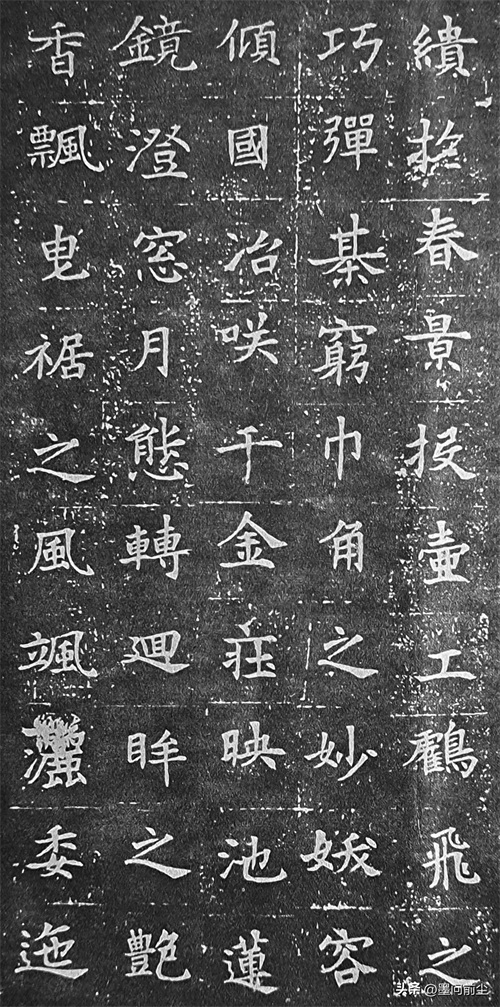 繢扵春景投壷工鸖飛之
巧彈棊窮巾角之妙妖容
傾國冶咲千金庄映池蓮
鏡澄窓月態轉迴眸之艷
香飄曳裾之風颯灑委迤
头条 @墨问前尘